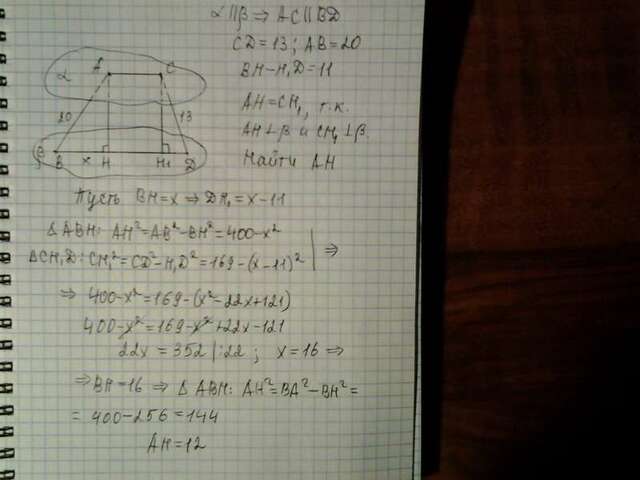 α∥β ⇒ AC∥BD
CD=13; AB=20
BH-H₁D=11
AH=CH₁, т.к.
AH⊥β и CH₁⊥β.
Найти AH
α A C
20 13
β B x H H₁ D
Пусть BH=x ⇒ DH₁=x-11
ΔABH: AH²=AB²-BH²=400-x²
ΔCH₁D: CH₁²=CD²-H₁D²=169-(x-11)² | ⇒
⇒ 400-x²=169-(x²-22x+121)
400-x²=169-x²+22x-121
22x=352 |:22 ; x=16 ⇒
⇒ BH=16 ⇒ Δ ABH: AH²=BA²-BH²=
= 400-256=144
AH=12